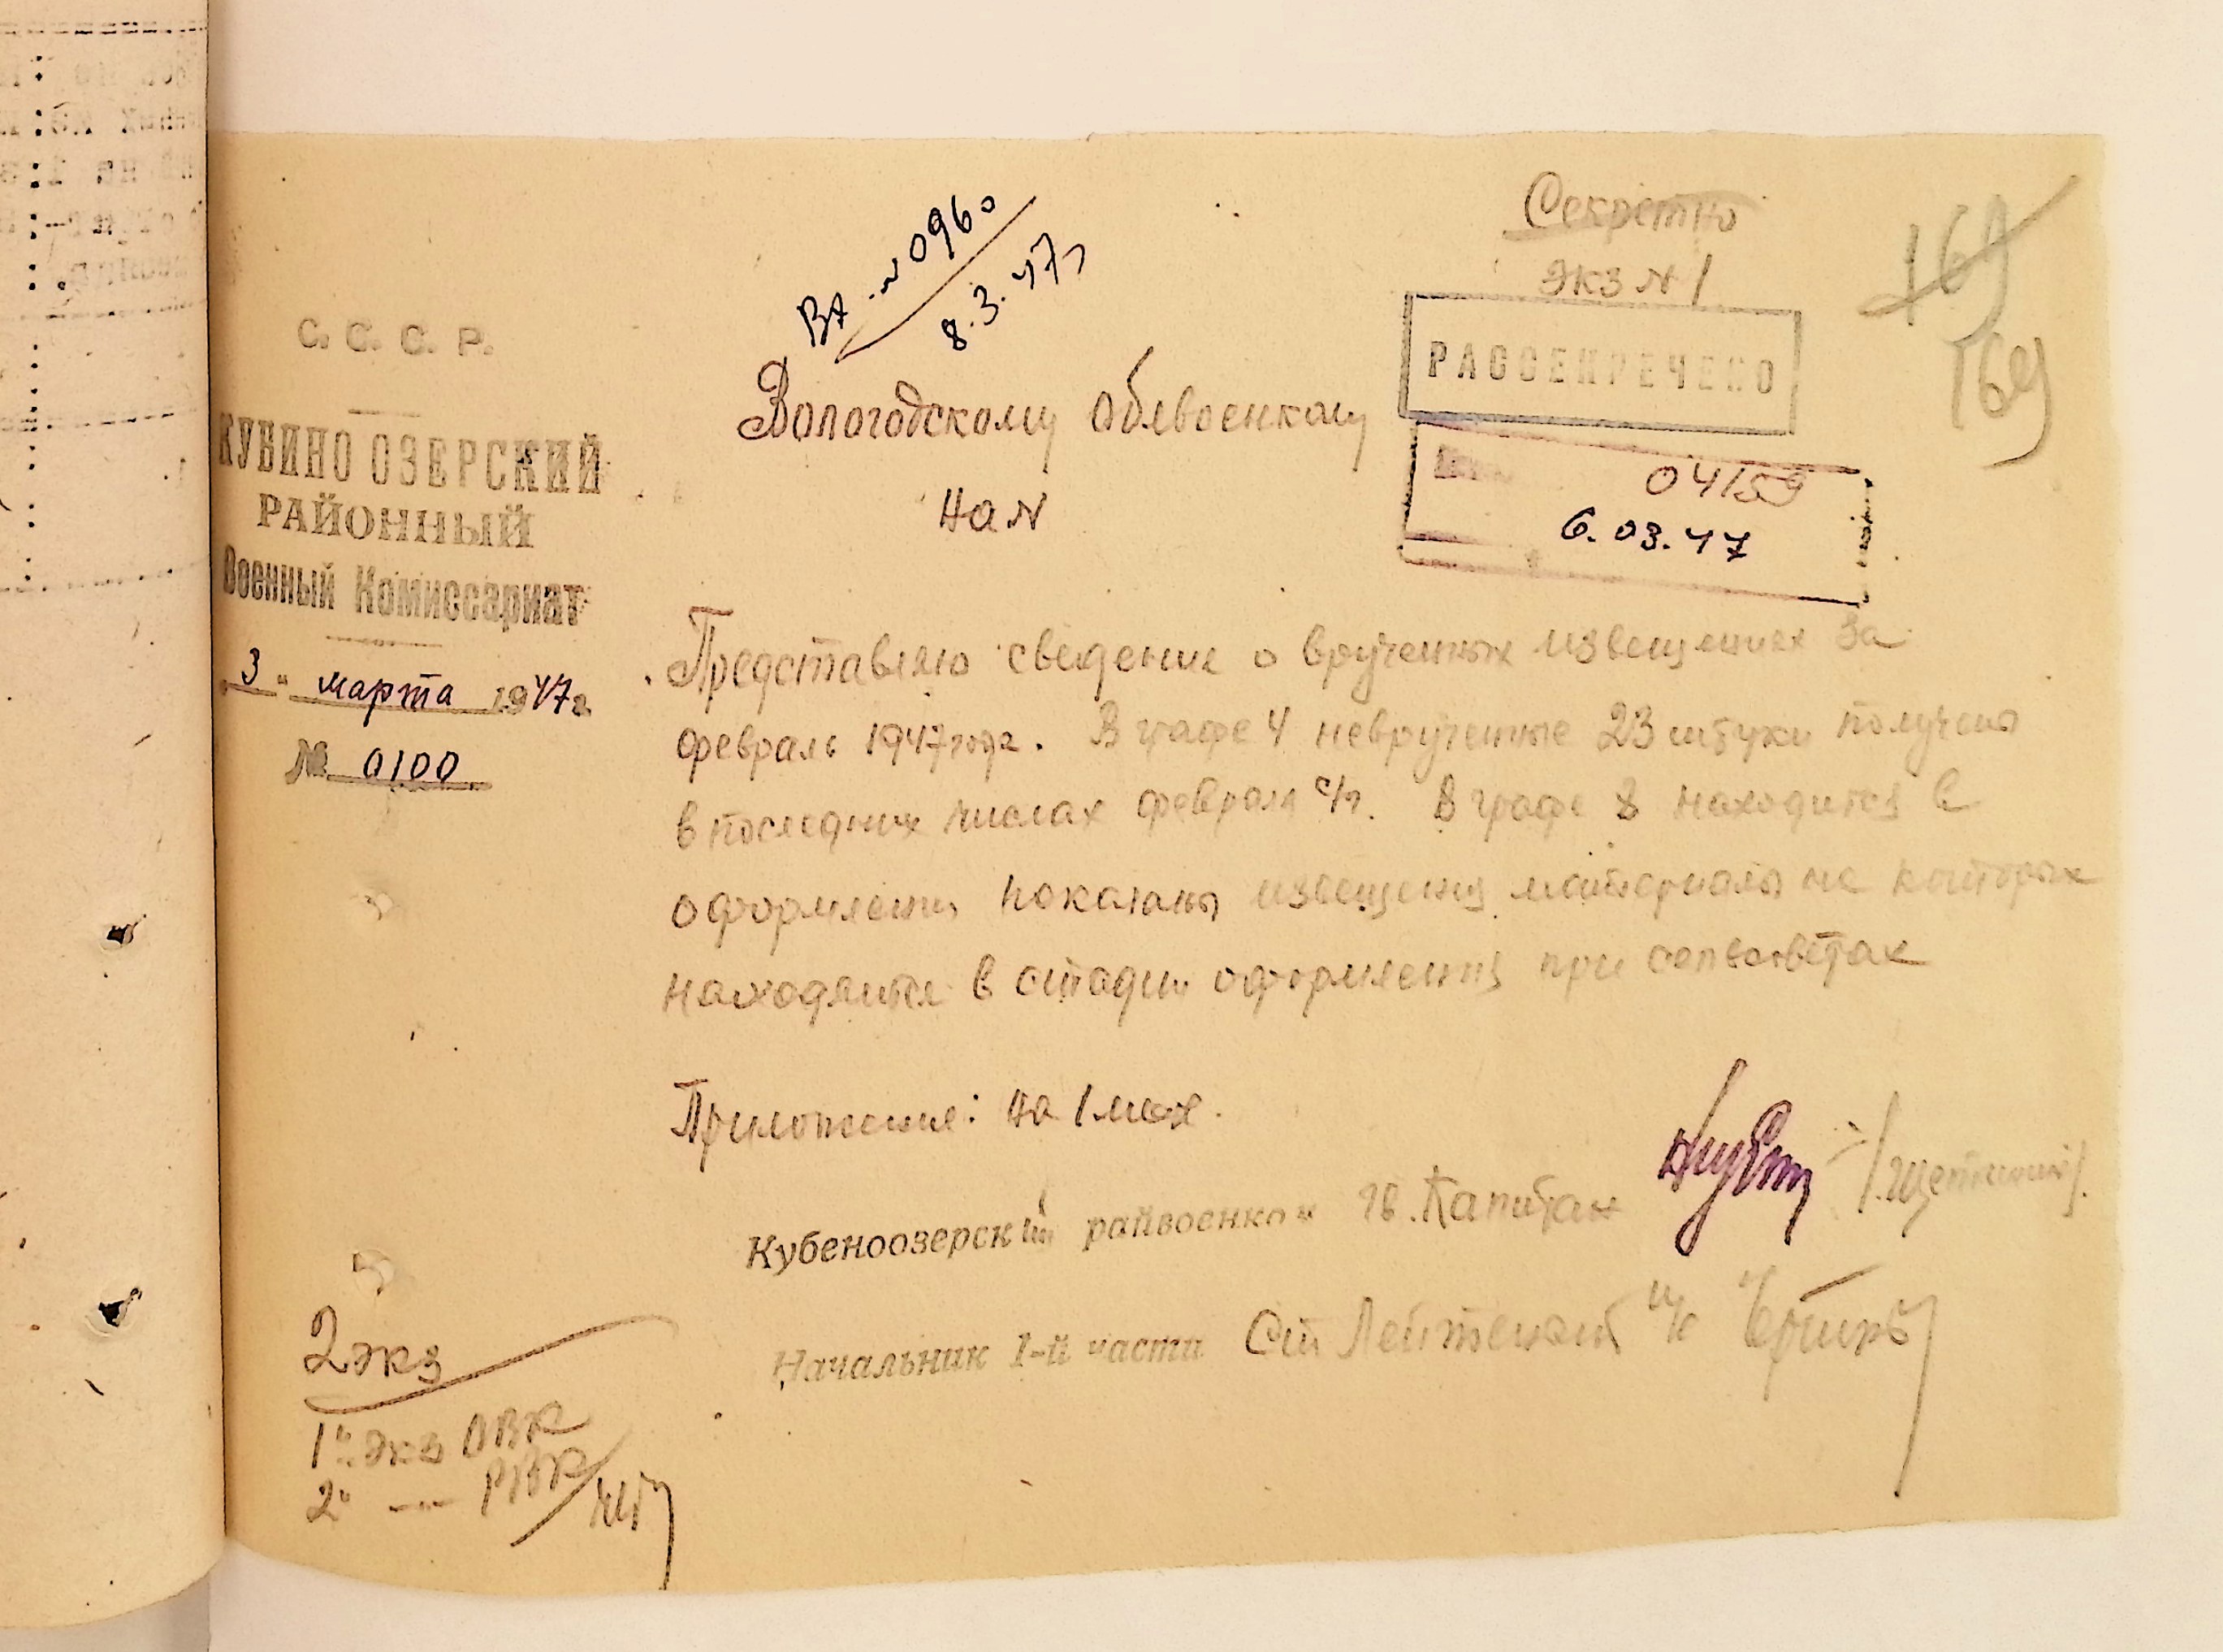 Секретно
экз № 1
169
169
РАССЕКРЕЧЕНО
Вх. № 0960
8.3.47г
С. С. С. Р.
КУБИНО ОЗЕРСКИЙ
РАЙОННЫЙ
Военный Комиссариат
3 " марта 1947г.
№ 0100
Вологодскому Облвоенкому
на №
04159
6.03.47
Представляю сведения о врученных извещениях за
февраль 1947 года. В графе 4 неврученные 23 штуки получены
в последних числах февраля с/г. В графе 8 находится в
оформлении показаны извещения материалы на которых
находятся в стадии оформления при сельсоветах
Приложение: на 1 листе.
Кубеноозерский райвоенком гв. Капитан /Щетинин/.
Начальник 1-й части Ст Лейтенант и/с
2 экз
1й экз ОВК
2й —"— РВК